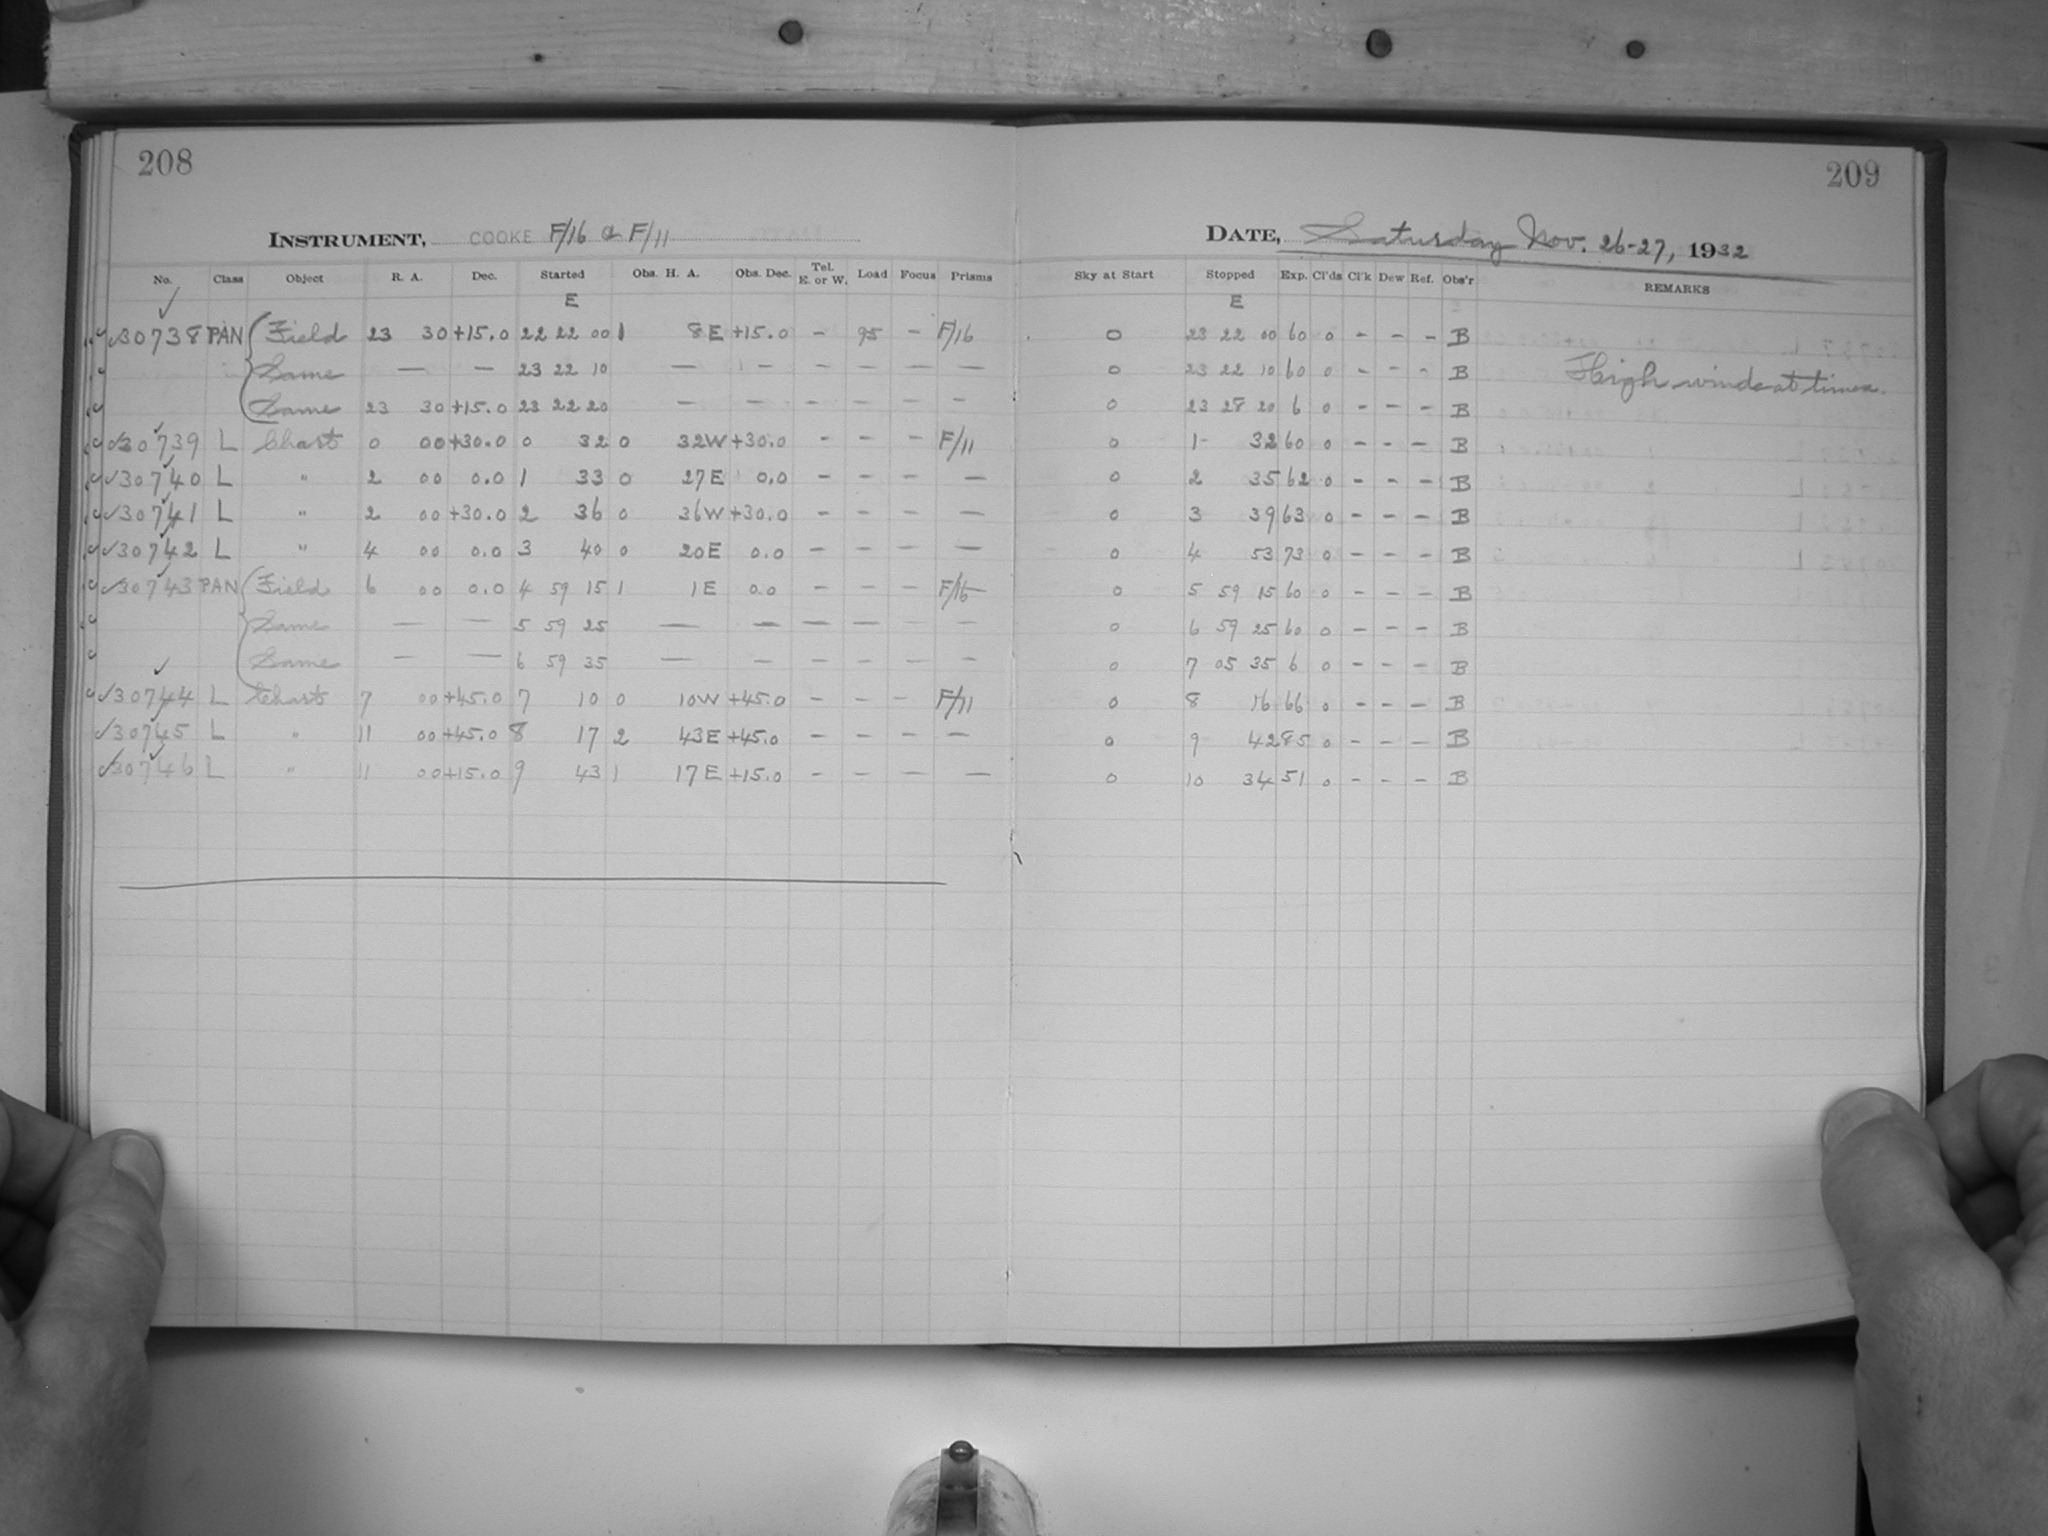 208
209
INSTRUMENT, COOKE F/16 & F/11
DATE, Saturday Nov. 26-27, 1932
No. Class Object R. A. Dec. Started Obs. H. A. Obs. Dec. Tel. E. or W. Load Focus Prisms Sky at Start Stopped Exp. Cl'ds Cl'k Dew Ref. Obs'r REMARKS
E E
30738 PAN Field 23 30 +15.0 22 22 00 1 8 E +15.0 - 95 - F/16 0 23 22 00 60 0 - - - B
Same — — 23 22 10 — - - - - — 0 23 22 10 60 0 - - - B High winds at times.
Same 23 30 +15.0 23 22 20 — - - - - - 0 23 28 20 6 0 - - - B
30739 L Chart 0 00 +30.0 0 32 0 32W +30.0 - - - F/11 0 1 32 60 0 - - - B
30740 L " 2 00 0.0 1 33 0 27 E 0.0 - - - — 0 2 35 62 0 - - - B
30741 L " 2 00 +30.0 2 36 0 36W +30.0 - - - — 0 3 39 63 0 - - - B
30742 L " 4 00 0.0 3 40 0 20E 0.0 - - - — 0 4 53 73 0 - - - B
30743 PAN Field 6 00 0.0 4 59 15 1 1 E 0.0 - - - F/16 0 5 59 15 60 0 - - - B
Same — — 5 59 25 — — — — - - 0 6 59 25 60 0 - - - B
Same — — 6 59 35 — - - - - - 0 7 05 35 6 0 - - - B
30744 L Chart 7 00 +45.0 7 10 0 10W +45.0 - - - F/11 0 8 16 66 0 - - - B
30745 L " 11 00 +45.0 8 17 2 43E +45.0 - - - — 0 9 42 85 0 - - - B
30746 L " 11 00 +15.0 9 43 1 17 E +15.0 - - - — 0 10 34 51 0 - - - B